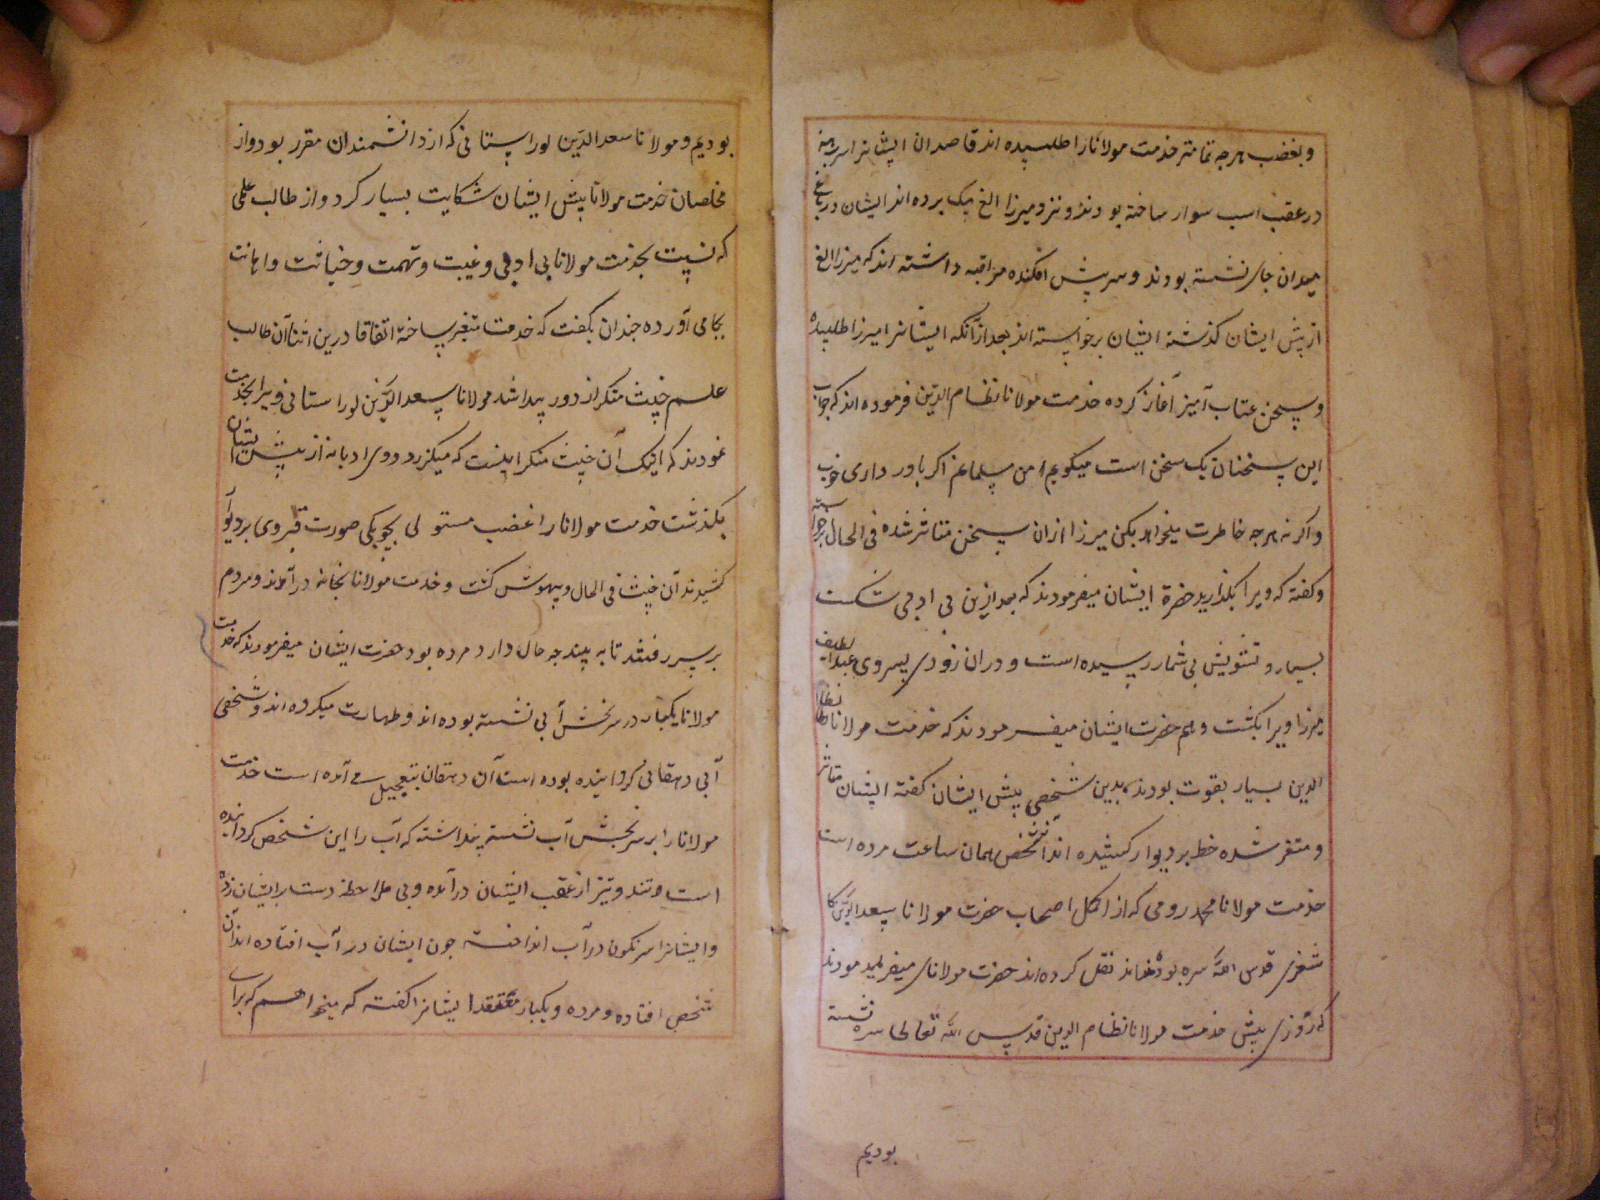 و بغضب هرچه تمامتر خدمت مولانا را طلبیده اند قاصدان ایشانرا سر برهنه
در عقب اسب سوار ساخته بودند و نزد میرزا الغ بیک برده اند ایشان در باغ
میدان جای نشسته بودند و سر پیش افکنده مراقبه داشته اند که میرزا الغ
از پیش ایشان گذشته ایشان برنخواسته اند بعد ازانکه ایشانرا میرزا طلبیده
و سخن عتاب آمیز آغاز کرده خدمت مولانا نظام الدین فرموده اند که جواب
این سخنان یک سخن است میگویم من مسلمانم اگر باور داری خوب
و اگر نه هرچه خاطرت میخواهد بکن میرزا ازان سخن متاثر شده فی الحال برخواسته
و گفته که ویرا بگذارید حضرة ایشان میفرمودند که بعد ازین بی ادبی شکست
بسیار و تشویش بی شمار رسیده است و دران زودی پسر وی عبد اللطیف
میرزا ویرا بکشت و هم حضرت ایشان میفرمودند که خدمت مولانا نظام
الدین بسیار بقوت بودند بدین شخصی پیش ایشان گفته ایشان متاثر
و متغیر شده خط بر دیوار کشیده اند آن شخص همان ساعت مرده است
خدمت مولانا محمد رومی که از کمل اصحاب حضرت مولانا سعد الدین کا
شغری قدس الله سره بوده اند نقل کرده اند حضرت مولانای میفرمودند
که روزی پیش خدمت مولانا نظام الدین قدس الله تعالی سره نشسته
بودیم
بودیم و مولانا سعد الدین لورستانی که از دانشمندان مقرر بود و از
مخلصان خدمت مولانا پیش ایشان شکایت بسیار کرد و از طالب علمی
که نسبت بخدمت مولانا بی ادبی و غیبت و تهمت و خیانت و اهانت
بجا می آورده چندان بگفت که خدمت متغیر ساخته اتفاقا درین اثنا آن طالب
علم خبیث منکر از دور پیدا شد مولانا سعد الدین لورستانی ویرا بخدمت
نمودند که اینک آن خبیث منکر اینست که میگزرد و وی ادبانه از پیش ایشان
بگذشت خدمت مولانا را غضب مستولی بچوبکی صورت قبری بر دیوار
کشیدند آن خبیث فی الحال بیهوش گشت و خدمت مولانا بخانه درآمدند و مردم
بر سر رفتند تا به بیند چه حال دارد مرده بود حضرت ایشان میفرمودند که خدمت
مولانا یکبار در سرخش آبی نشسته بوده اند و طهارت میکرده اند و شخصی
آبی دهقانی گردانیده بوده است آن دهقان بتعجیل می آمده است خدمت
مولانا را بر سرخش آب نشسته پنداشته که آب را این شخص گردانیده
است و تند و تیز از عقب ایشان درآمده و بی ملاحظه دست بر ایشان زده
و ایشانرا سرنگون در آب انداخته چون ایشان در آب افتاده اند آن
شخص افتاده و مرده و یکبار معتقد ایشانرا گفته که میخواهم که برای